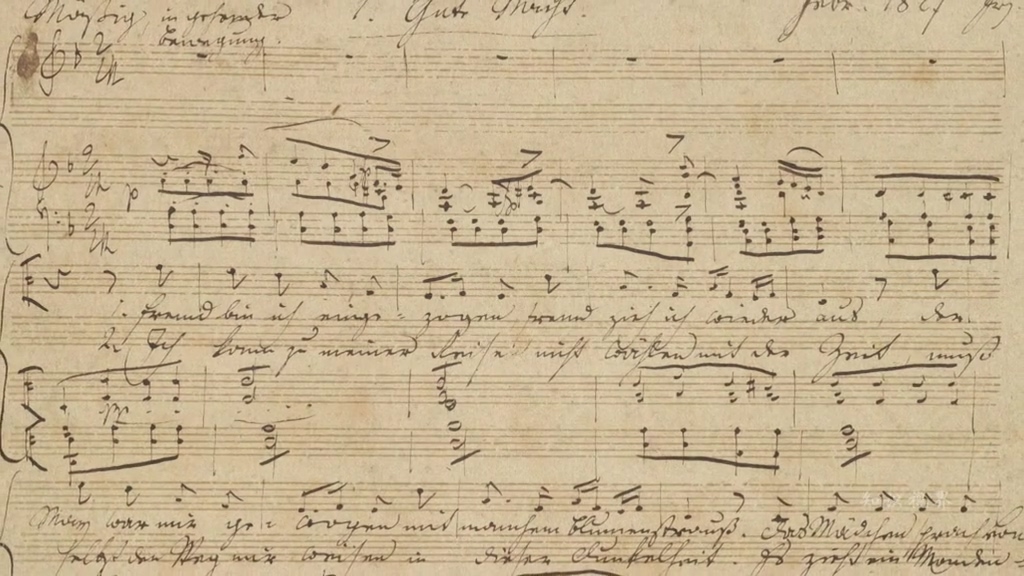 Mäßig, in gehender 1. Gute Nacht. Febr. 1827
Bewegung.
p
1. Fremd bin ich einge- zogen fremd zieh ich wieder aus, der
2. Ich kann zu meiner Reise nicht wählen mit der Zeit, muß
pp
May war mir ge- wogen mit manchem Blumenstrauß. Das Mädchen sprach von
selbst den Weg mir weisen in dieser Dunkelheit. Es zieht ein Monden-